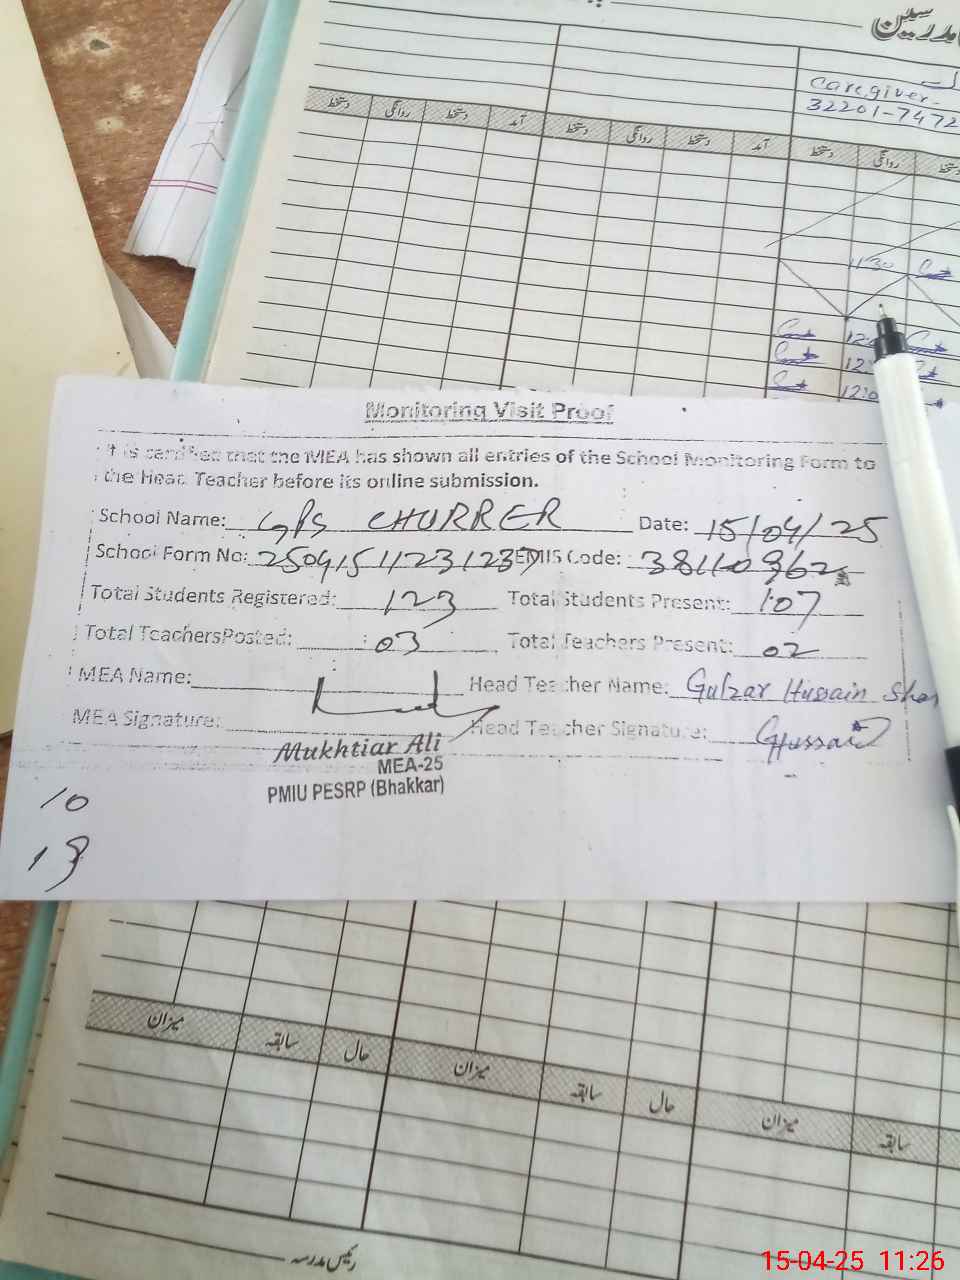 مدرسین
caregiver-
32201-7472
دستخط روانگی دستخط آمد دستخط روانگی دستخط آمد دستخط روانگی دستخط
11:30
Monitoring Visit Proof
It is certified that the MEA has shown all entries of the School Monitoring Form to
the Head Teacher before its online submission.
School Name: GPS CHURRER Date: 15/04/25
School Form No: EMIS Code:
Total Students Registered: 123 Total Students Present: 107
Total TeachersPosted: 03 Total Teachers Present: 02
MEA Name: Head Teacher Name: Gulzar Hussain
MEA Signature: Head Teacher Signature: GHussain
Mukhtiar Ali
MEA-25
PMIU PESRP (Bhakkar)
10
میزان سابقہ حال میزان سابقہ حال میزان سابقہ
رئیس مدرسہ
15-04-25 11:26